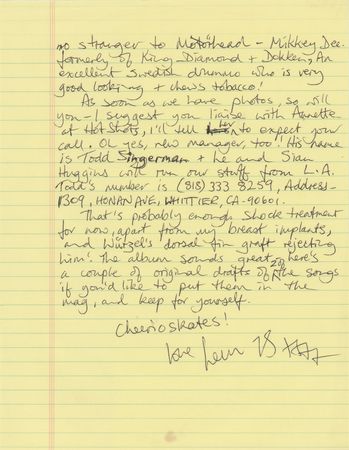 no stranger to Motörhead - Mikkey Dee.
formerly of King Diamond + Dokken, An
excellent Swedish drummer who is very
good looking + chews tobacco!
As soon as we have photos, so will
you - I suggest you liaise with Annette
at Hot Shots, I'll tell her to expect your
call. Oh yes, new manager, too! His name
is Todd Singerman + he and Sian
Huggins will run our stuff from L.A.
Todd's number is (818) 333 8259, Address-
1309, HONAN AVE, WHITTIER, CA-90601.
That's probably enough shock treatment
for now, apart from my breast implants,
and Würzel's dorsal fin graft rejecting
him! The album sounds great, here's
a couple of original drafts of the songs
if you'd like to put them in the
mag, and keep for yourself.
Cheerioskates!
love